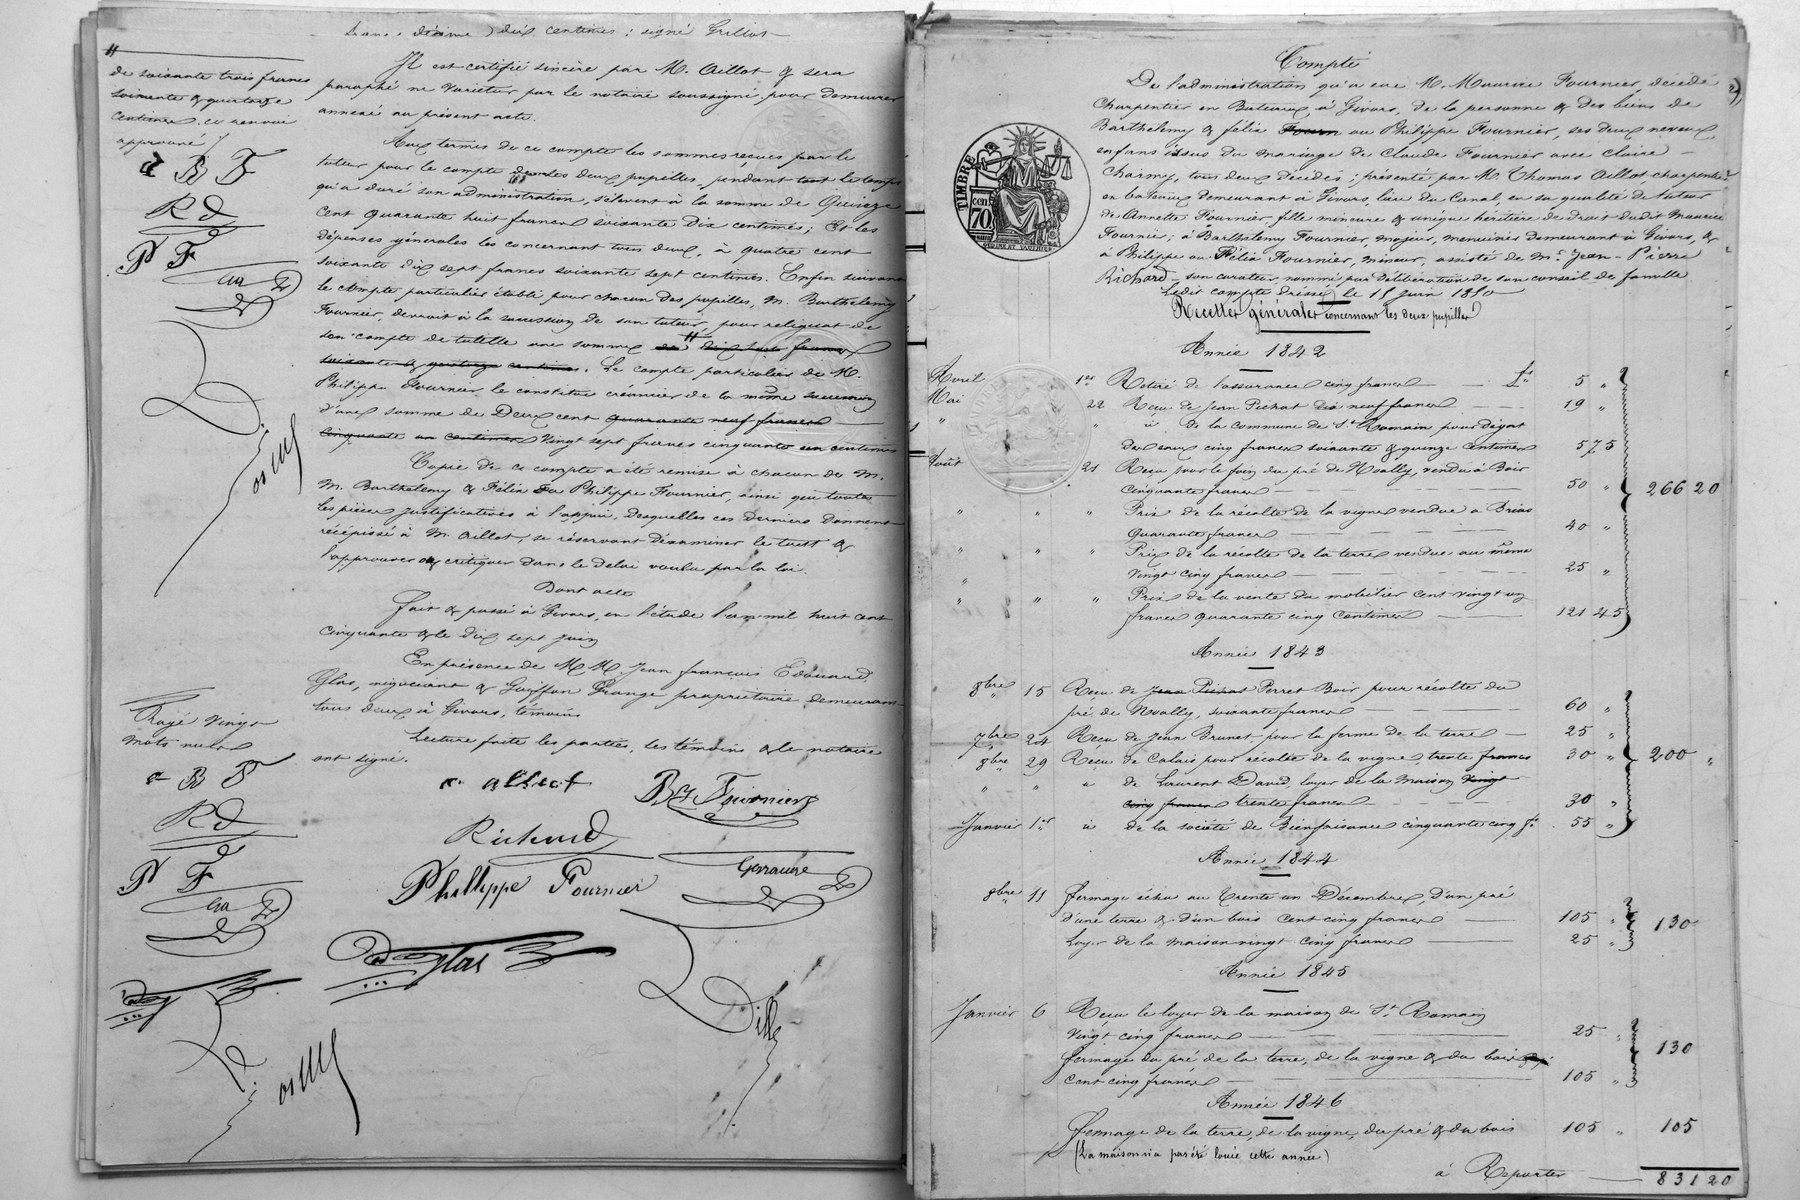 dix centimes ; signé Grillot
Il est certifié sincère par M. Aillot & sera
paraphé ne varietur par le notaire soussigné, pour demeurer
annexé au présent acte.
Aux termes de ce compte les sommes reçues par le
tuteur pour le compte des deux pupilles, pendant tout le temps
qu'a duré son administration, s'élèvent à la somme de Quinze
cent quarante huit francs soixante dix centimes ; Et les
dépenses générales les concernant tous deux, à quatre cent
soixante dix sept francs soixante sept centimes. Enfin suivant
le compte particulier établi pour chacun des pupilles, M. Barthelemy
Fournier, devrait à la succession de son tuteur, pour reliquat de
son compte de tutelle une somme de " dix huit francs
soixante & quatorze centimes. Le compte particulier de M.
Philippe Fournier le constitue créancier de la même succession
d'une somme de Deux cent quarante neuf francs
cinquante un centimes vingt sept francs cinquante un centimes
Copie de ce compte a été remise à chacun de M.
M. Barthelemy & Félix ou Philippe Fournier, ainsi que toutes
les pièces justificatives à l'appui, desquelles ces derniers donnent
récépissé à M. Aillot, se réservant d'examiner le tout &
l'approuver ou critiquer dans le délai voulu par la loi.
Dont acte
Fait & passé à Givors, en l'étude l'an mil huit cent
cinquante & le dix sept juin
En présence de M M Jean françois Edouard
Glas, négociant & propriétaire demeurant
tous deux à Givors, témoins
Lecture faite les parties, les témoins & le notaire
ont signé.
"
de soixante trois francs
soixante & quatorze
centimes. ce renvoi
approuvé
B F
Rd
P F
Rayé vingt
mots nuls
B F
Rd
P F
B Fournier
Richard
Philippe Fournier
glas
Compte
De l'administration qu'a eue M. Maurice Fournier, décédé
Charpentier en Bateaux à Givors, de la personne & des biens de
Barthelemy & félix Fourn ou Philippe Fournier, ses deux neveux,
enfans issus du mariage de Claude Fournier avec Claire
Charmy, tous deux décédés ; présenté par M. Thomas Aillot, charpentier
en bateaux demeurant à Givors, lieu du Canal, en sa qualité de tuteur
de Annette Fournier, fille mineure & unique héritière de droit dudit Maurice
Fournier ; à Barthelemy Fournier, majeur, menuisier demeurant à Givors, &
à Philippe ou Félix Fournier, mineur, assisté de Mr Jean-Pierre
Richard son curateur nommé par délibération de son conseil de famille
Ledit compte dressé le 15 juin 1850
TIMBRE
70 cen.
Recettes générales concernant les deux pupilles
Année 1842
Avril 1er Retiré de l'assurance cinq francs 5 "
Mai 22 Reçu de Jean Pichat dix neuf francs 19 "
" " " de la commune de St Romain pour dégat
des eaux cinq francs soixante & quinze centimes 5 75
Août 21 Reçu pour le foin du pré de Noally, vendu à Boir
cinquante francs 50 " 266 20
" " " Prix de la récolte de la vigne vendue à
Quarante francs 40 "
" " " Prix de la récolte de la terre vendue au même
vingt cinq francs 25 "
" " " Prix de la vente du mobilier cent vingt un
francs quarante cinq centimes 121 45
Année 1843
8bre 15 Reçu de Jean Pichat Perret Boir pour récolte du
pré de Noally, soixante francs 60 "
7bre 24 Reçu de Jean Brunet pour la ferme de la terre 25 "
8bre 29 Reçu de Calais pour récolte de la vigne trente francs 30 " 200 "
" " " de Laurent David, loyer de la maison vingt
cinq francs trente francs 30 "
Janvier 1er " de la société de Bienfaisance cinquante cinq f. 55 "
Année 1844
8bre 11 Fermage échu au Trente un Décembre, d'un pré
d'une terre & d'un bois cent cinq francs 105 " 130
Loyer de la maison vingt cinq francs 25 "
Année 1845
Janvier 6 Reçu le loyer de la maison de St Romain
vingt cinq francs 25 " 130
Fermage du pré de la terre, de la vigne & du bois
cent cinq francs 105 "
Année 1846
Fermage de la terre, de la vigne, du pré & du bois 105 " 105
(La maison n'a pas été louée cette année)
à Reporter 831 20